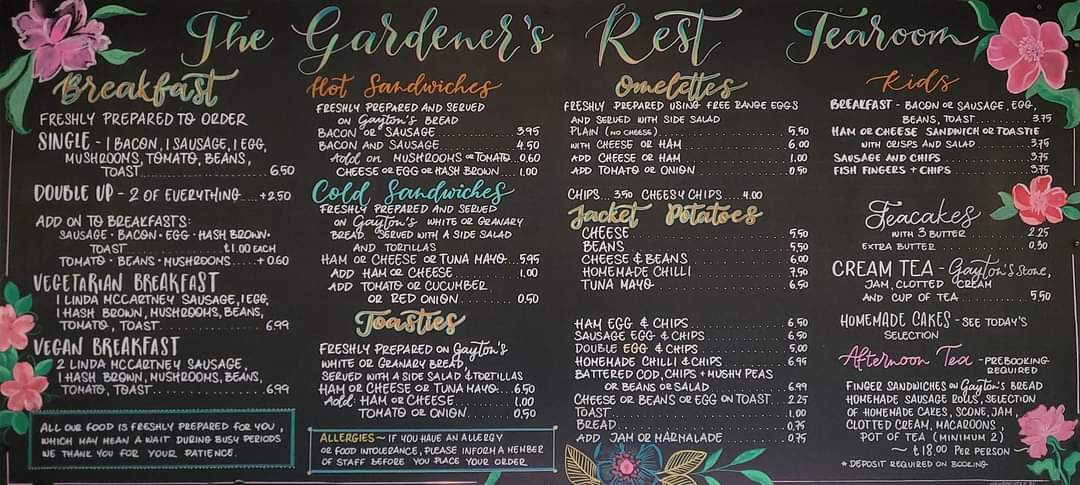 The Gardener's Rest Tearoom
Breakfast
FRESHLY PREPARED TO ORDER
SINGLE - 1 BACON, 1 SAUSAGE, 1 EGG,
MUSHROOMS, TOMATO, BEANS,
TOAST 6.50
DOUBLE UP - 2 OF EVERYTHING.... +2.50
ADD ON TO BREAKFASTS:
SAUSAGE · BACON · EGG · HASH BROWN ·
TOAST £1.00 EACH
TOMATO · BEANS · MUSHROOMS..... + 0.60
VEGETARIAN BREAKFAST
1 LINDA MCCARTNEY SAUSAGE, 1 EGG,
1 HASH BROWN, MUSHROOMS, BEANS,
TOMATO, TOAST 6.99
VEGAN BREAKFAST
2 LINDA MCCARTNEY SAUSAGE,
1 HASH BROWN, MUSHROOMS, BEANS,
TOMATO, TOAST 6.99
ALL OUR FOOD IS FRESHLY PREPARED FOR YOU,
WHICH MAY MEAN A WAIT DURING BUSY PERIODS
WE THANK YOU FOR YOUR PATIENCE.
Hot Sandwiches
FRESHLY PREPARED AND SERVED
ON Gayton's BREAD
BACON OR SAUSAGE 3.95
BACON AND SAUSAGE 4.50
Add on MUSHROOMS OR TOMATO . 0.60
CHEESE OR EGG OR HASH BROWN .... 1.00
Cold Sandwiches
FRESHLY PREPARED AND SERVED
ON Gayton's WHITE OR GRANARY
BREAD SERVED WITH A SIDE SALAD
AND TORTILLAS
HAM OR CHEESE OR TUNA MAYO... 5.95
ADD HAM OR CHEESE 1.00
ADD TOMATO OR CUCUMBER
OR RED ONION 0.50
Toasties
FRESHLY PREPARED ON Gayton's
WHITE OR GRANARY BREAD,
SERVED WITH A SIDE SALAD & TORTILLAS
HAM OR CHEESE OR TUNA MAYO... 6.50
Add: HAM OR CHEESE 1.00
TOMATO OR ONION 0.50
ALLERGIES ~ IF YOU HAVE AN ALLERGY
OR FOOD INTOLERANCE, PLEASE INFORM A MEMBER
OF STAFF BEFORE YOU PLACE YOUR ORDER
Omelettes
FRESHLY PREPARED USING FREE RANGE EGGS
AND SERVED WITH SIDE SALAD
PLAIN (NO CHEESE) 5.50
WITH CHEESE OR HAM 6.00
ADD CHEESE OR HAM 1.00
ADD TOMATO OR ONION 0.50
CHIPS... 3.50 CHEESY CHIPS....4.00
Jacket Potatoes
CHEESE 5.50
BEANS 5.50
CHEESE & BEANS 6.00
HOMEMADE CHILLI 7.50
TUNA MAYO 6.50
HAM EGG & CHIPS 6.50
SAUSAGE EGG & CHIPS 6.50
DOUBLE EGG & CHIPS 5.00
HOMEMADE CHILLI & CHIPS 6.99
BATTERED COD, CHIPS + MUSHY PEAS
OR BEANS OR SALAD 6.99
CHEESE OR BEANS OR EGG ON TOAST.... 2.25
TOAST 1.00
BREAD 0.75
ADD JAM OR MARMALADE 0.75
Kids
BREAKFAST - BACON OR SAUSAGE, EGG,
BEANS, TOAST 3.75
HAM OR CHEESE SANDWICH OR TOASTIE
WITH CRISPS AND SALAD 3.75
SAUSAGE AND CHIPS 3.75
FISH FINGERS + CHIPS 3.75
Teacakes
WITH 3 BUTTER 2.25
EXTRA BUTTER 0.30
CREAM TEA - Gayton's Scone,
JAM, CLOTTED CREAM
AND CUP OF TEA 5.50
HOMEMADE CAKES - SEE TODAY'S
SELECTION
Afternoon Tea - PREBOOKING
REQUIRED
FINGER SANDWICHES ON Gayton's BREAD
HOMEMADE SAUSAGE ROLLS, SELECTION
OF HOMEMADE CAKES, SCONE, JAM,
CLOTTED CREAM, MACAROONS,
POT OF TEA (MINIMUM 2)
~ £18.00 PER PERSON ~
* DEPOSIT REQUIRED ON BOOKING